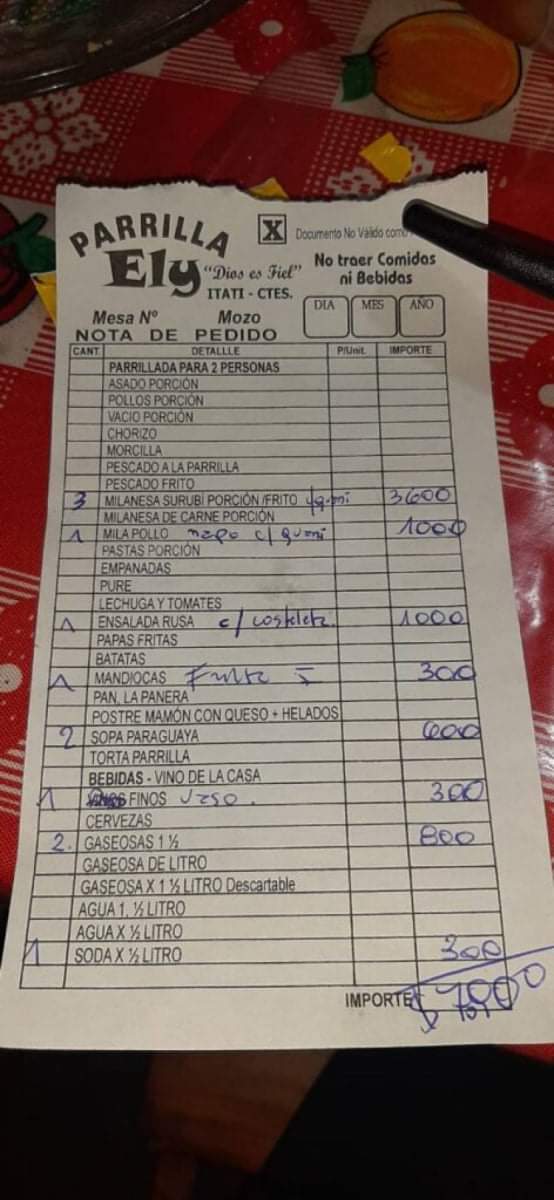 PARRILLA
Ely
"Dios es Fiel"
ITATI - CTES.
X
Documento No Válido como
No traer Comidas
ni Bebidas
Mesa Nº Mozo
DIA MES AÑO
NOTA DE PEDIDO
CANT. DETALLLE P/Unit. IMPORTE
PARRILLADA PARA 2 PERSONAS
ASADO PORCIÓN
POLLOS PORCIÓN
VACIO PORCIÓN
CHORIZO
MORCILLA
PESCADO A LA PARRILLA
PESCADO FRITO
3 MILANESA SURUBÍ PORCIÓN /FRITO 3600
MILANESA DE CARNE PORCIÓN
1 MILA POLLO napo c/ guarni 1000
PASTAS PORCIÓN
EMPANADAS
PURE
LECHUGA Y TOMATES
1 ENSALADA RUSA c/ costeleta 1000
PAPAS FRITAS
BATATAS
1 MANDIOCAS Frita 300
PAN, LA PANERA
POSTRE MAMÓN CON QUESO + HELADOS
2 SOPA PARAGUAYA 600
TORTA PARRILLA
BEBIDAS - VINO DE LA CASA
1 FINOS Vaso. 300
CERVEZAS
2. GASEOSAS 1 ½ 800
GASEOSA DE LITRO
GASEOSA X 1 ½ LITRO Descartable
AGUA 1, ½ LITRO
AGUA X ½ LITRO
1 SODA X ½ LITRO 300
IMPORTE $